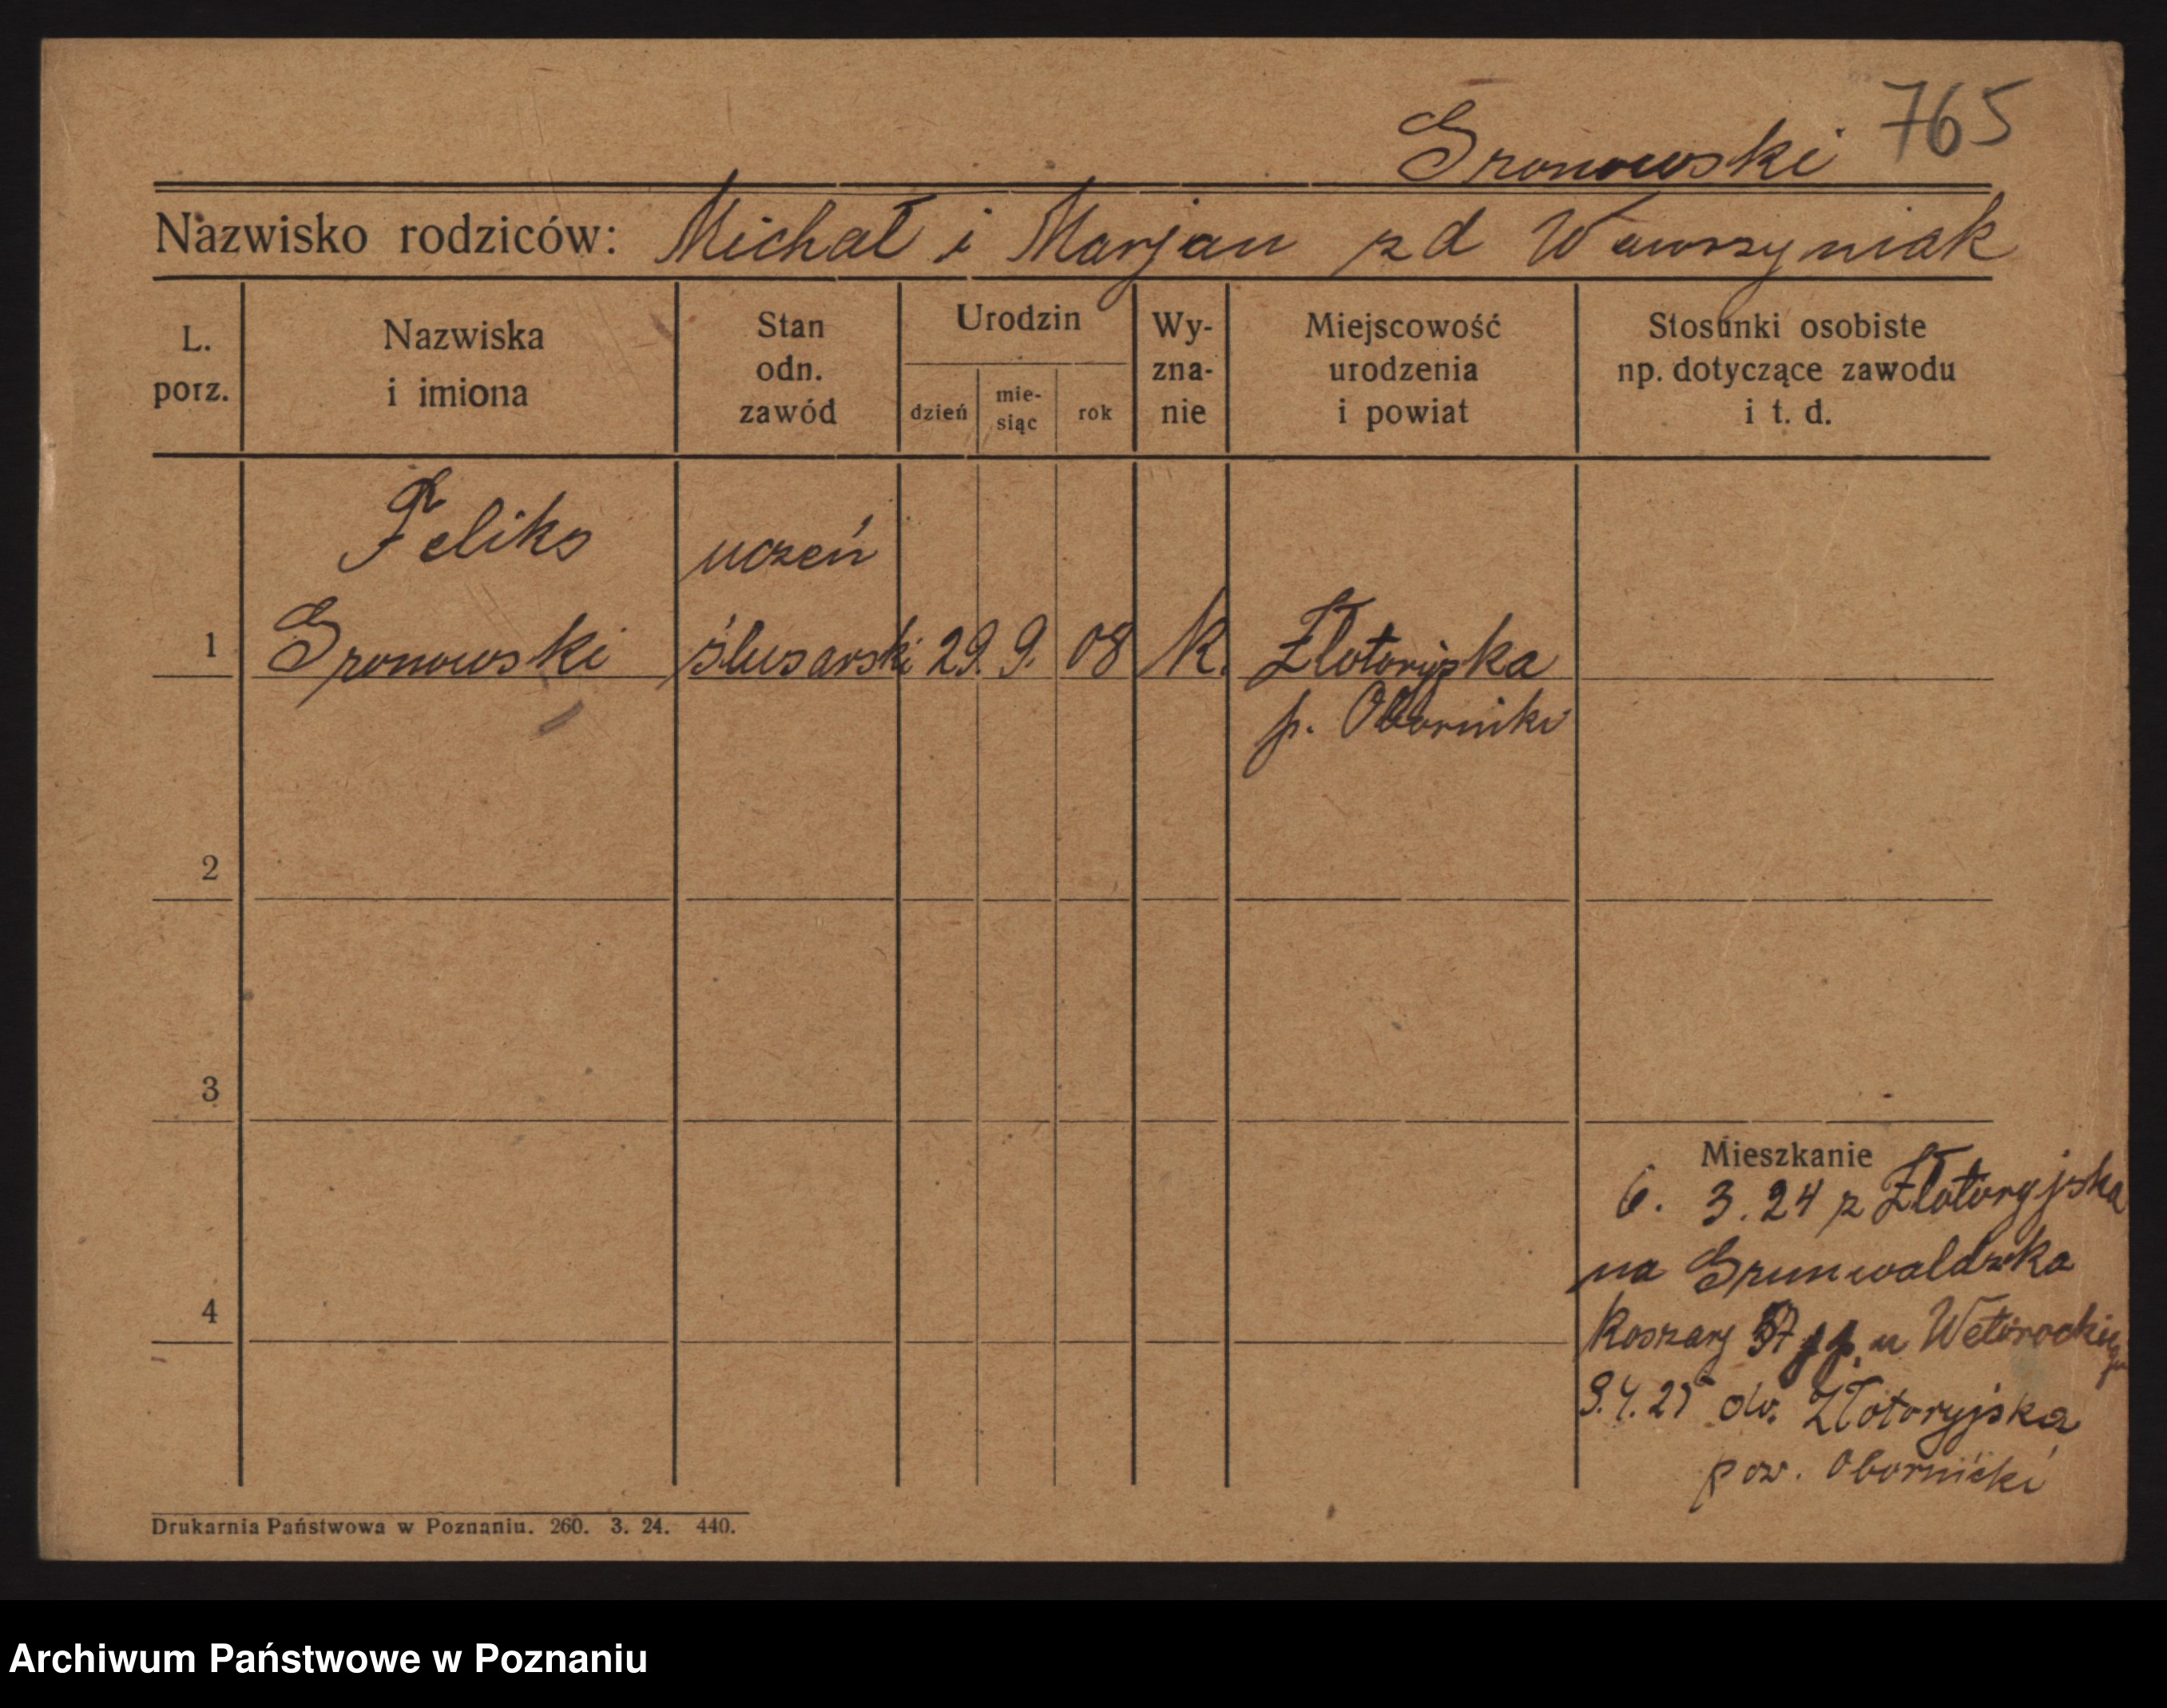 765
Gronowski
Nazwisko rodziców: Michał i Marjan zd Wawrzyniak
L. porz.
Nazwiska i imiona
Stan odn. zawód
Urodzin
dzień
mie-siąc
rok
Wy-zna-nie
Miejscowość urodzenia i powiat
Stosunki osobiste np. dotyczące zawodu i t. d.
Feliks uczeń
1 Gronowski ślusarski 29. 9. 08 K. Złotoryjska
p. Oborniki
2
3
Mieszkanie
6. 3. 24 z Złotoryjska
na Grunwaldzka
4
Koszary pp. u
9.4.25 do. Złotoryjska
pow. Obornicki
Drukarnia Państwowa w Poznaniu. 260. 3. 24. 440.
Archiwum Państwowe w Poznaniu